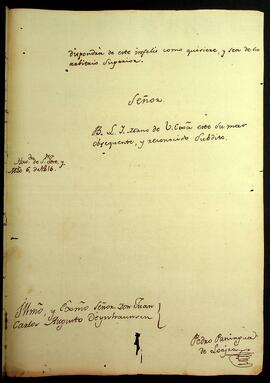 dispondrá de este infeliz como quisiere, y sea de su
arbitrio Superior.
Señor.
B. L. I. Mano de V. Exa este su mas
obsequente, y reconocido Subdito.
y
6, de 1816.
Illmô, y Exmô Señor Don Juan
Carlos Augusto D
Pedro Paningua
de Loajza